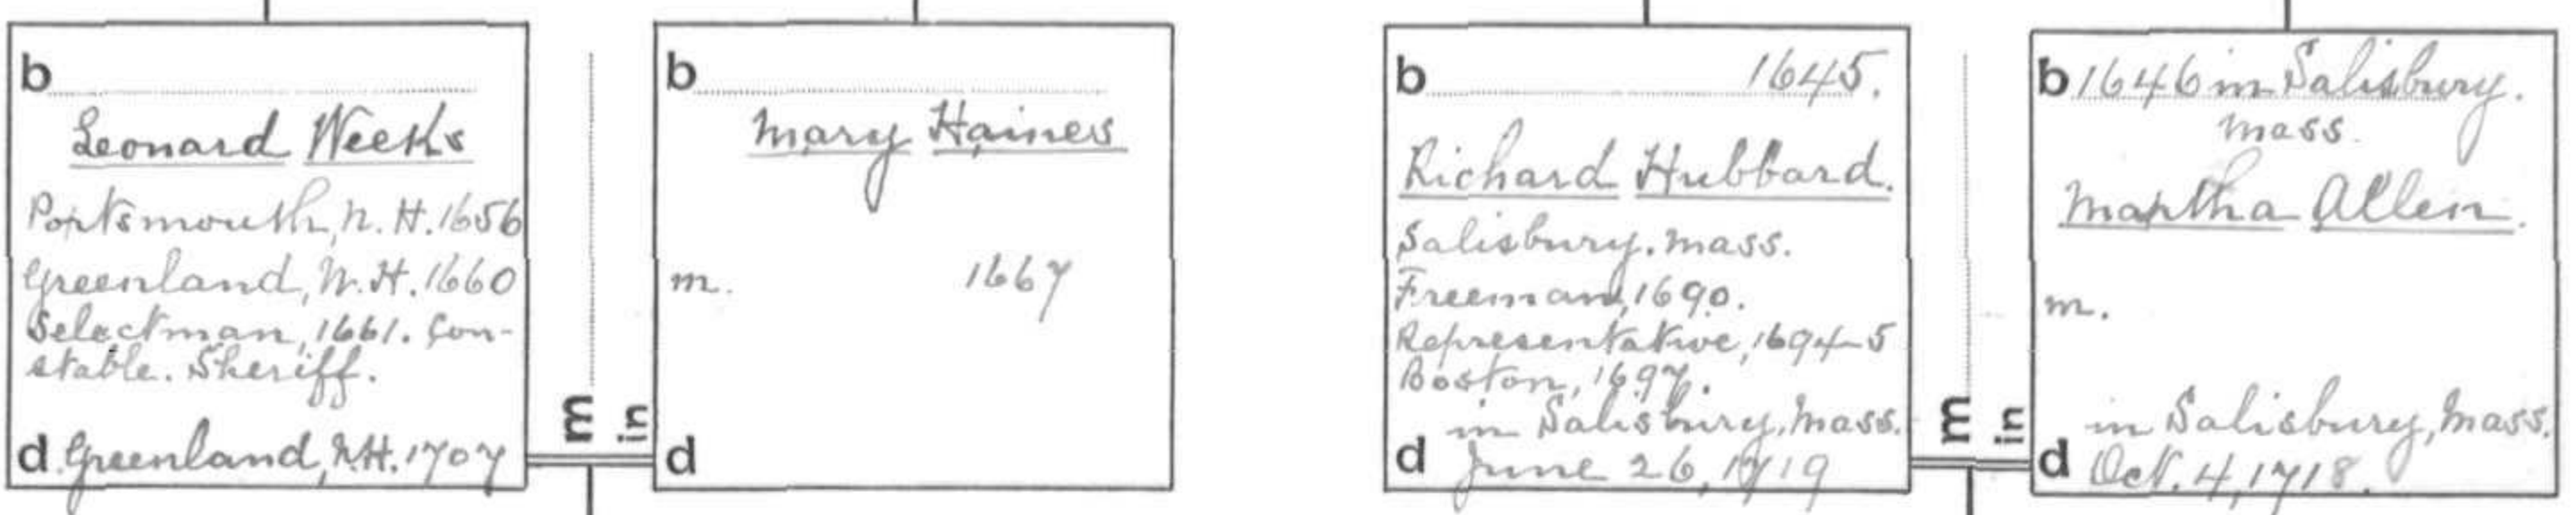 b
Leonard Weeks
Portsmouth, N.H. 1656
Greenland, N.H. 1660
Selectman, 1661. Con-
stable. Sheriff.
d Greenland, N.H. 1707
m
in
b
Mary Haines
m. 1667
d
b 1645.
Richard Hubbard.
Salisbury. Mass.
Freeman, 1690.
Representative, 1694-5
Boston, 1697.
in Salisbury, Mass.
d June 26, 1719
m
in
b 1646 in Salisbury.
Mass.
Martha Allen.
m.
in Salisbury, Mass.
d Oct. 4, 1718.